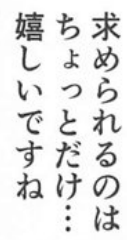 求められるのは
ちょっとだけ…
嬉しいですね